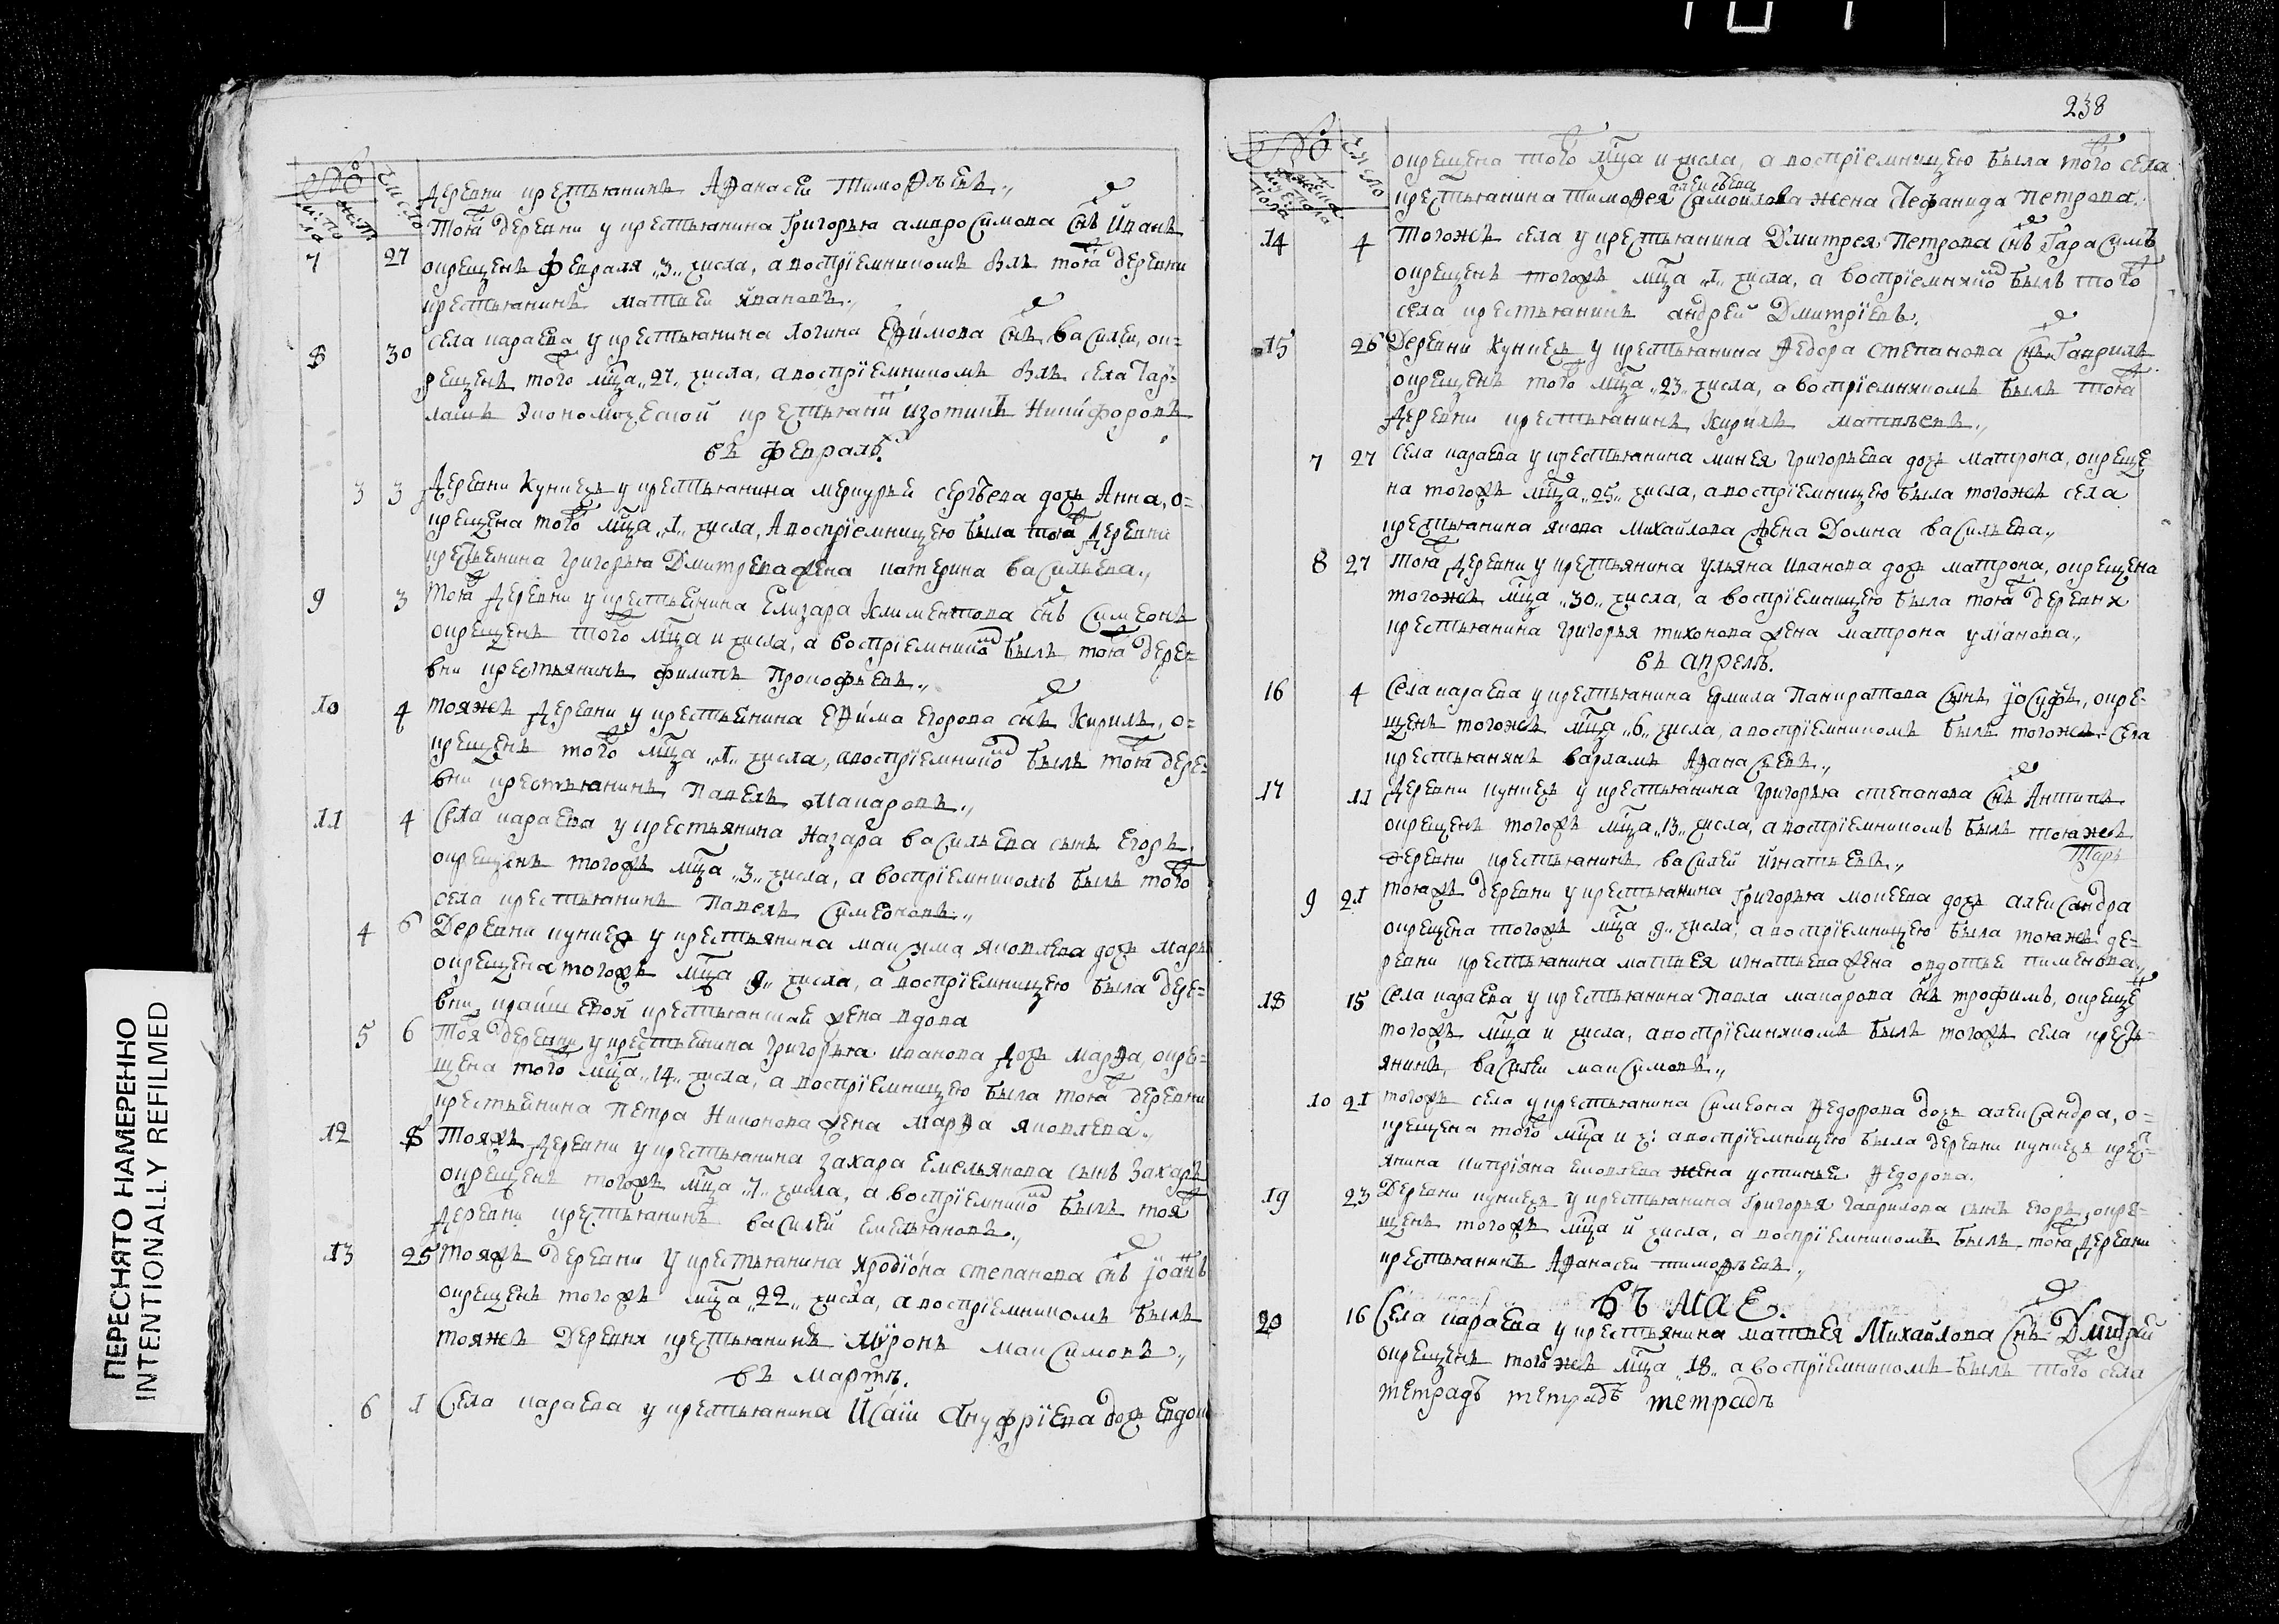 238
число
деревни крестьянинъ Афанасеи Тимофѣевъ.,
7 27 Тоя деревни у крестьянина Григорья амвросимова снъ Иванъ
окрещенъ февраля „3„ числа, а воспрїемникомъ былъ тоя деревни
крестьянинъ матвеи яковлевъ.,
8 30 села караева у крестьянина логина Ефимова снъ василеи, ок=
рещенъ того мца „27„ числа, а воспрїемникомъ былъ села
Экономической крестьянинъ изотикъ Никифоровъ
въ февралѣ.
3 3 Деревни Куниць у крестьянина меркурьи сергѣева дочь Анна, о=
крещена того мца „1„ числа, А воспрїемницею была тоя деревни
крестьянина григорья Дмитрева жена катерина васильева.,
9 3 Тоя деревни у крестьянина Елизара Климентова снъ Симеонъ
окрещенъ того мца и числа, а воспрїемнико былъ тоя дере=
вни крестьянинъ филипъ Прокофьевъ.,
10 4 тояжъ деревни у крестьянина Ефима Егорова снъ Кирилъ, о=
крещенъ того мца „1„ числа, а воспрїемнико былъ тоя дере=
вни крестьянинъ Павелъ Макаровъ.,
11 4 Села караева у крестьянина Назара васильева сынъ Егоръ,
окрещенъ тогожъ мца „3„ числа, а воспрїемникомъ былъ того
села крестьянинъ Павелъ Симеоновъ.,
4 6 Деревни куницъ у крестьянина максима яковлева дочь Марь
окрещена тогожъ мца „9„ числа, а воспрїемницею была дере=
вни крестьянина жена вдова
5 6 Тоя деревни у крестьянина григорья иванова дочь марфа, окре=
щена того мца „14„ числа, а воспрїемницею была тоя деревни
крестьянина Петра Никонова жена Марфа яковлева.,
12 8 Тояжъ деревни у крестьянина захара Емельянова сынъ Захаръ
окрещенъ тогожъ мца „7„ числа, а воспрїемнико былъ тоя
деревни крестьянинъ василей емельяновъ.,
13 25 Тояжъ деревни у крестьянина Иродїона степанова снъ Іоанъ
окрещенъ тогожъ мца „22„ числа, а воспрїемникомъ былъ
тояжъ деревни крестьянинъ Мѵронъ максимовъ.,
въ мартѣ.
6 1 Села караева у крестьянина Исаїи Ануфрїева дочь Евдок
число
окрещена того мца и числа, а воспрїемницею была того села
крестьянина тимофея алексѣева самойлова жена Пефанида Петрова.
14 4 Тогожъ села у крестьянина Дмитрея Петрова снъ Гарасимъ
окрещенъ тогожъ мца „1„ числа, а воспрїемнико былъ того
села крестьянинъ андрей Дмитрїевъ.
15 26 Деревни Куницъ у крестьянина Федора степанова снъ Гаврилъ
окрещенъ того мца „23„ числа, а воспрїемникомъ былъ тоя
деревни крестьянинъ Кирилъ матвѣевъ.,
7 27 Села караева у крестьянина минея григорьева дочь матрона, окреще
на тогожъ мца „25„ числа, а воспрїемницею была тогожъ села
крестьянина якова михайлова жена Домна васильева.,
8 27 Тоя деревни у крестьянина ульяна иванова дочь матрона, окрещена
тогожъ мца „30„ числа, а воспрїемницею была тоя деревни
крестьянина григорья тихонова жена матрона улїанова.,
въ апрелѣ.
16 4 Села караева у крестьянина ермила Панкратова сынъ Іосифъ, окре=
щенъ тогожъ мца „6„ числа, а воспрїемникомъ былъ тогожъ села
крестьянинъ варламъ Афанасьевъ.,
17 11 Деревни куницъ у крестьянина григорья степанова снъ Антипъ
окрещенъ тогожъ мца „13„ числа, а воспрїемникомъ былъ тояжъ
деревни крестьянинъ василей игнатьевъ.,
9 21 тояжъ деревни у крестьянина григорья мокеева дочь александра
окрещена тогожъ мца „9„ числа, а воспрїемницею была тояжъ де=
ревни крестьянина матвея игнатьева жена авдотьи пименова.,
18 15 Села караева у крестьянина Павла макарова снъ трофимъ, окреще
тогожъ мца и числа, а воспрїемникомъ былъ тогожъ села крест=
янинъ, василеи максимовъ.,
10 21 тогожъ села у крестьянина симеона Федорова дочь александра, о=
крещена того мца и ч: а воспрїемницею была деревни куницъ крес=
янина кипрїяна яковлева жена устиньи Федорова.
19 23 Деревни куницъ у крестьянина Григорья гаврилова сынъ егоръ, окре=
щенъ тогожъ мца и числа, а воспрїемникомъ былъ тоя деревни
крестьянинъ Афанасеи тимофѣевъ.,
въ мае.
20 16 Села караева у крестьянина матвея Михайлова снъ Дмитрей
окрещенъ тогожъ мца „18„ а воспрїемникомъ былъ того села
тетрадъ тетрадъ тетрадъ
ПЕРЕСНЯТО НАМЕРЕННО
INTENTIONALLY REFILMED